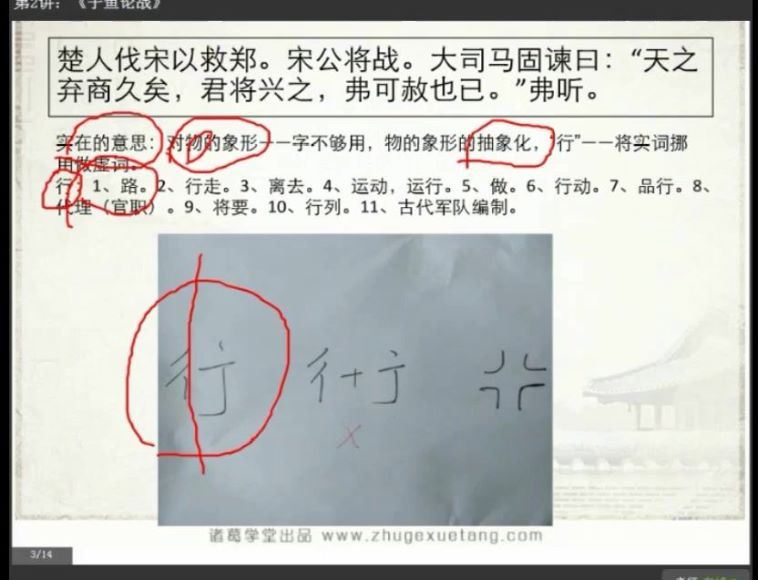 第2讲：《子鱼论战》
楚人伐宋以救郑。宋公将战。大司马固谏曰：“天之
弃商久矣，君将兴之，弗可赦也已。”弗听。
实在的意思：对物的象形——字不够用，物的象形的抽象化，“行”——将实词挪
用做虚词。
行：1、路。2、行走。3、离去。4、运动，运行。5、做。6、行动。7、品行。8、
代理（官职）。9、将要。10、行列。11、古代军队编制。
行 彳+亍
×
诸葛学堂出品 www.zhugexuetang.com
3/14